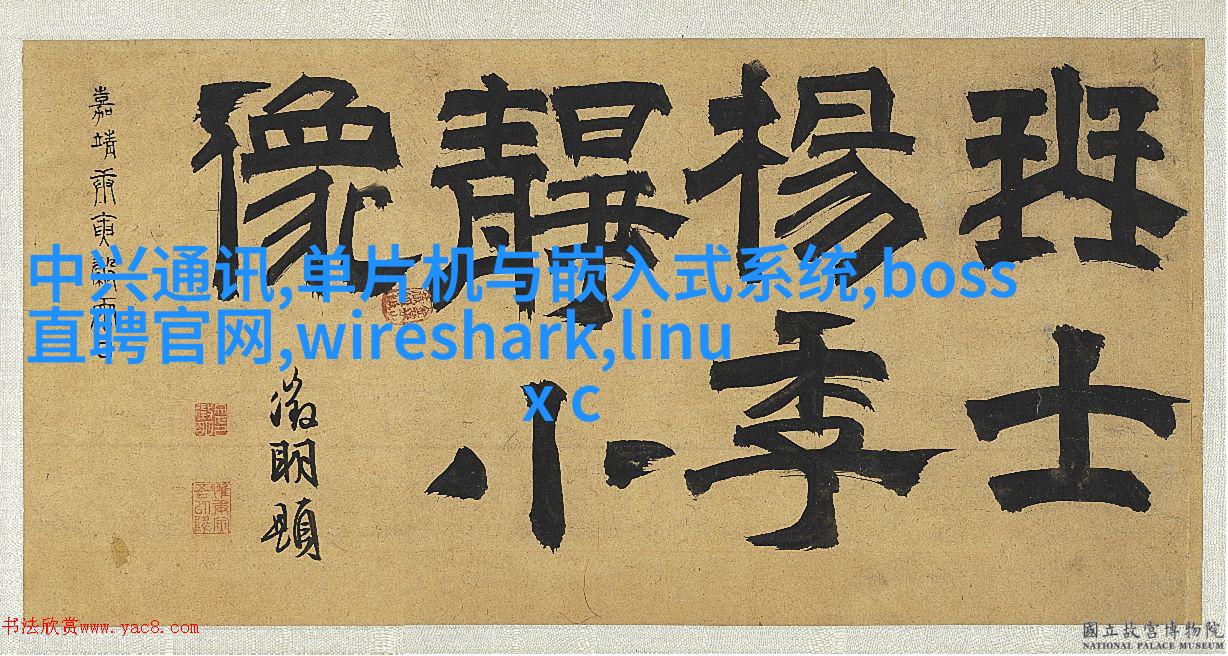 琴士
楊季
靜小
像
嘉靖庚寅穀雨日
徵明題
中兴通讯,单片机与嵌入式系统,boss
直聘官网,wireshark,linu
x c
书法欣赏www.yac8.com
國立故宮博物院
NATIONAL PALACE MUSEUM